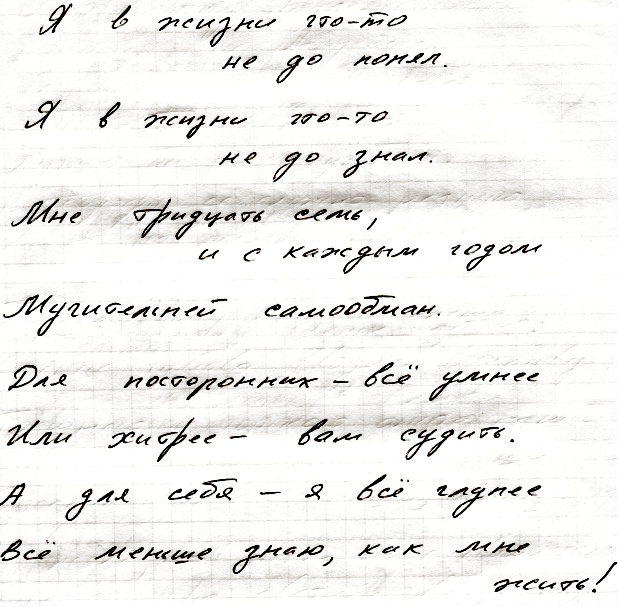 Я в жизни что-то
не до понял.
Я в жизни что-то
не до знал.
Мне тридцать семь,
и с каждым годом
Мучительней самообман.
Для посторонних – всё умнее
Или хитрее – вам судить.
А для себя – я всё глупее
Всё меньше знаю, как мне
жить!